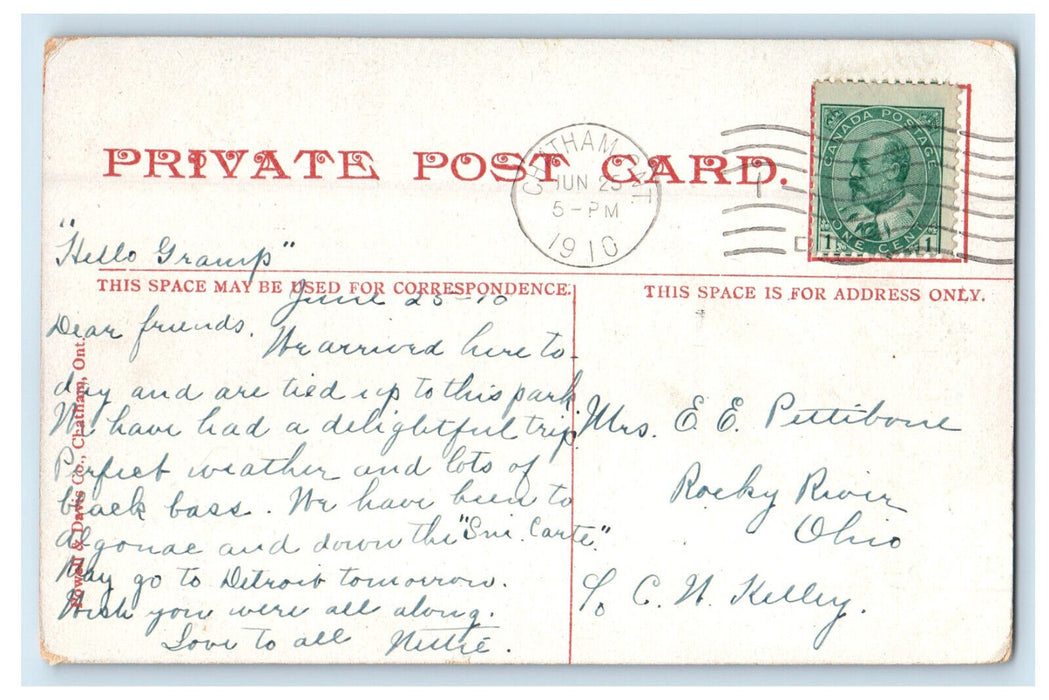 PRIVATE POST CARD.
CHATHAM, ONT.
JUN 25
5-PM
1910
CANADA POSTAGE
ONE CENT
1 1
"Hello Gramp"
THIS SPACE MAY BE USED FOR CORRESPONDENCE.
THIS SPACE IS FOR ADDRESS ONLY.
June 25-10
Dear friends.
We arrived here to-
day and are tied up to this park.
We have had a delightful trip.
Perfect weather and lots of
black bass. We have been to
Algonac and down the "Sni. Carte."
May go to Detroit tomorrow.
Wish you were all along.
Love to all Nettie.
Powell & Davis Co., Chatham, Ont.
Mrs. E. E. Pettibone
Rocky River
Ohio
c/o C. H. Kelley.